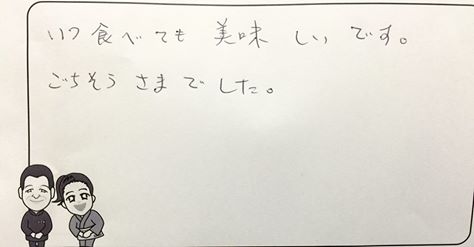 いつ食べても美味しいです。
ごちそうさまでした。